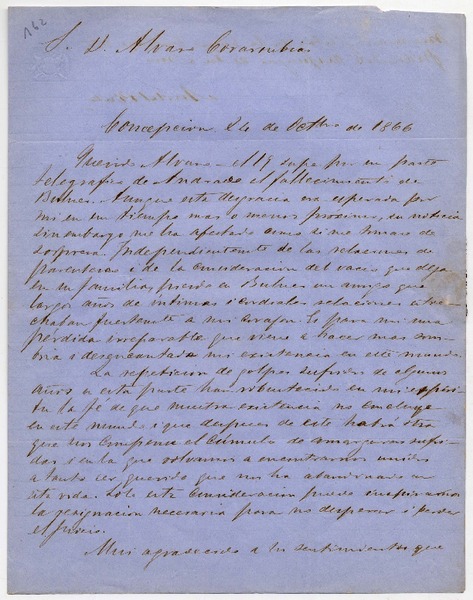 162
S. D. Alvaro Covarrubias
Concepcion 24 de Octbre de 1866
Querido Alvaro - el 19 supe por un parte
telegrafico de Andrade el fallecimiento de
Bulnes. Aunque esta desgracia era esperada por
mi en un tiempo mas o menos procsimo, su noticia
sin embargo me ha afectado como si me tomase de
sorpresa. Independientemente de las relaciones de
parentesco i de la consideracion del vacio que deja
en su familia, pierdo en Bulnes un amigo que
largos años de intimas i cordiales relaciones estre-
chaban fuertemente a mi corazon. Es para mi una
pérdida irreparable que viene a hacer mas som-
bria i desencantada mi existencia en este mundo.
La repeticion de golpes sufridos de algunos
años a esta parte han robustecido en mi espiri-
tu la fé de que nuestra existencia no concluye
en este mundo i que despues de este habrá otro
que nos compense el cúmulo de amarguras sufri-
das i en la que volvamos a encontrarnos unidos
a tanto ser querido que nos ha abandonado en
esta vida. Solo esta consideracion puede inspirarnos
la resignacion necesaria para no desesperar i perder
el juicio.
Mui agradecido a los sentimientos que